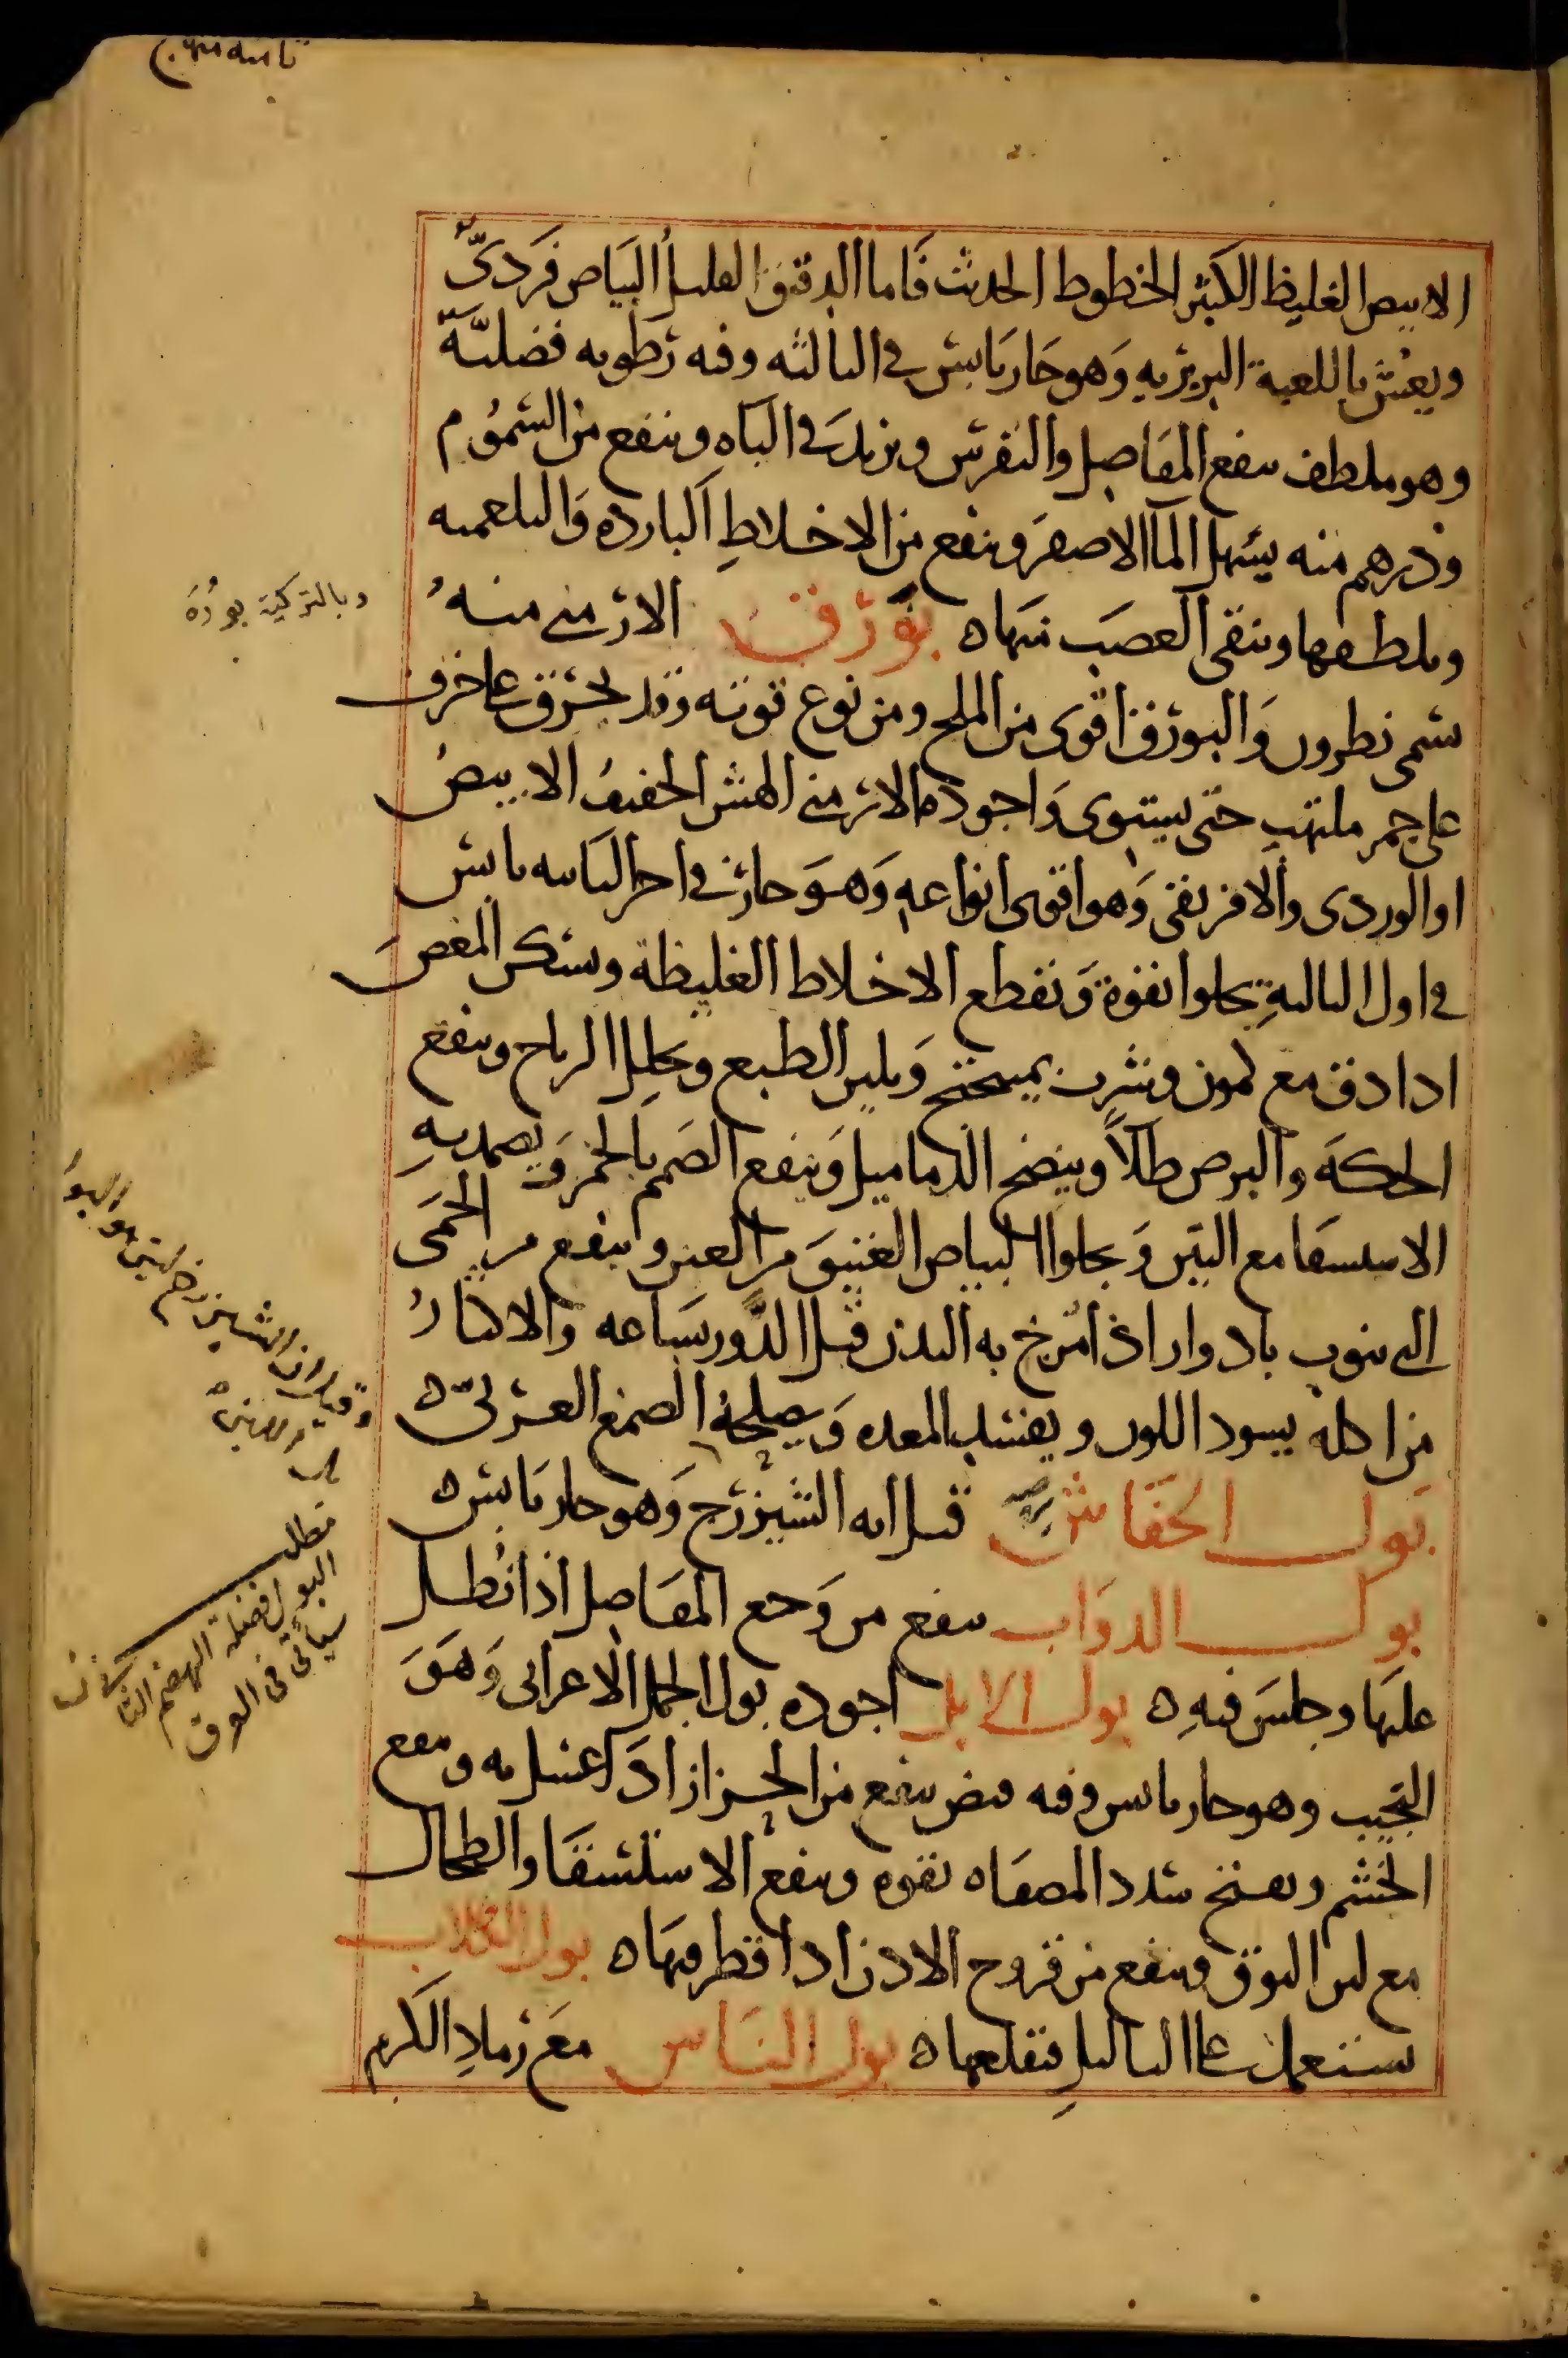 الابيض الغليظ الكثير الخطوط الحديث فاما الدقيق القليل البياض فَرَديّ
ويغش باللعبة البربريه وَهو حَار يَابس في الثالثه وفيه رَطوبه فضليّة
وهو ملطف ينفع المفاصل والنقرس ويزيد في الباه وينفع من السمُوم
ودرهم منه يسهل الما الاصفر وينفع من الاخلاطِ الباردة وَالبلغميه
ويلطفها وينقي العصَب منها ه بَورَق الارمني منهُ
يسمى نطرون وَالبورق اقوى من الملح ومن نوع قوته وقد يحرق على خزف
على جمر ملتهب حتى يستوى وَاجوده الارمني الهش الخفيف الابيض
او الوردى والافريقي وَهو اقوى انواعه وَهوَ حار في اخر الثانيه يابس
في اول الثالثةِ يجلوا بقوة وَيقطع الاخلاط الغليظة ويسكن المغص
اذا دق مع كمون وشرب بميبختج وَيلين الطبع ويحلل الرياح وينفع
الحكة والبرص طلاً وينضج الدماميل وَينفع الصَمم بالخمر وَيضمد بهِ
الاستسقا مع التين وَيجلوا البياض العتيق من العين وينفع من الحمَى
التي تنوب بادوار اذا مُرخ به البدن قبل الدَّور بسَاعه والاكثارُ
من اكله يسود اللون ويفسد المعده وَيصلحهُ الصمغ العَربيّ ه
بَول الخفّاش قيل انه الشيزرج وَهو حار يَابس ه
بول الدوَاب ينفع من وَجع المفَاصل اذا نُطل
عليهَا وجلسَ فيهِ ه بول الابل اجوده بول الجمل الاعرابي وَهوَ
النجيب وهو حار يابس وفيه قبض ينفع من الحزاز اذا اغتسل به وينفع
الخشم ويفتح سدد المصفاه بقوه وينفع الاستسقا والطحال
مع لبن النوق وينفع من قروح الاذن اذا قطر فيهَا ه بول الكلاب
يستعمل على الثاليل فيقلعها ه بول النَاس مَع رَمادِ الكَرم
وبالتركية بورَه
وقيل ان الشيزرج
مطلب
البول فضلة الهضم الثانى
سيأتى فى العرق